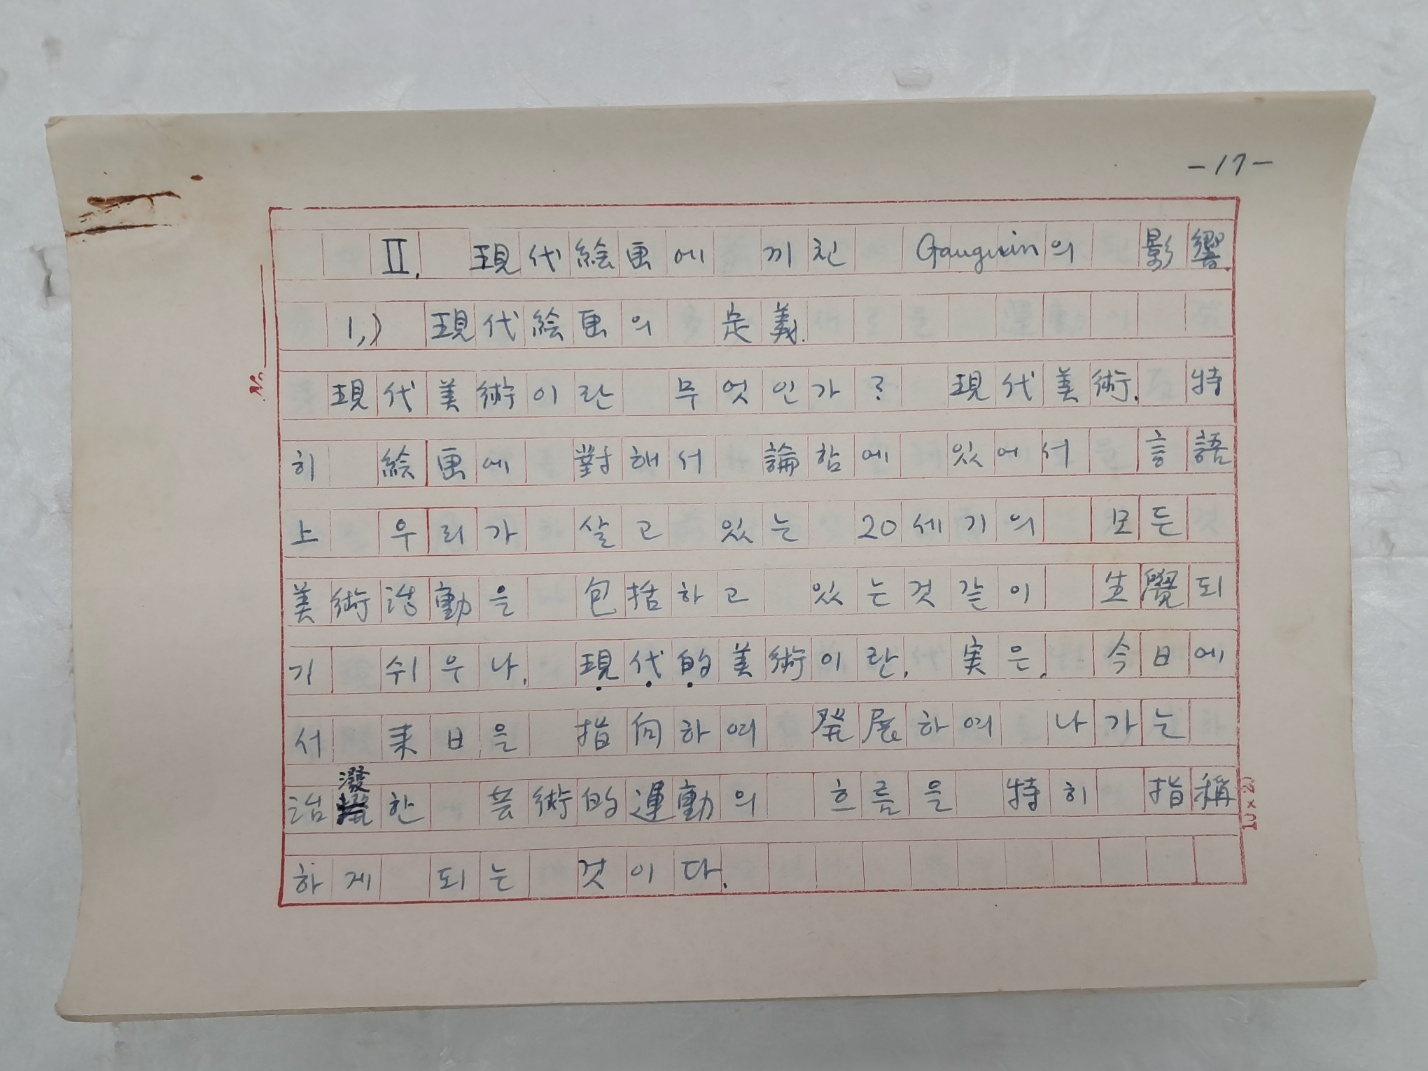 -17-
Ⅱ. 現代絵画에 끼친 Gauguin의 影響.
1,) 現代絵画의 定義.
現代美術이란 무엇인가? 現代美術, 特
히 絵画에 對해서 論함에 있어서 言語
上 우리가 살고 있는 20세기의 모든
美術活動을 包括하고 있는것 같이 生覺되
기 쉬우나, 現代的美術이란, 実은, 今日에
서 来日을 指向하여 発展하여 나가는
活潑한 芸術的運動의 흐름을 特히 指稱
하게 되는 것이다.
No.
10×20